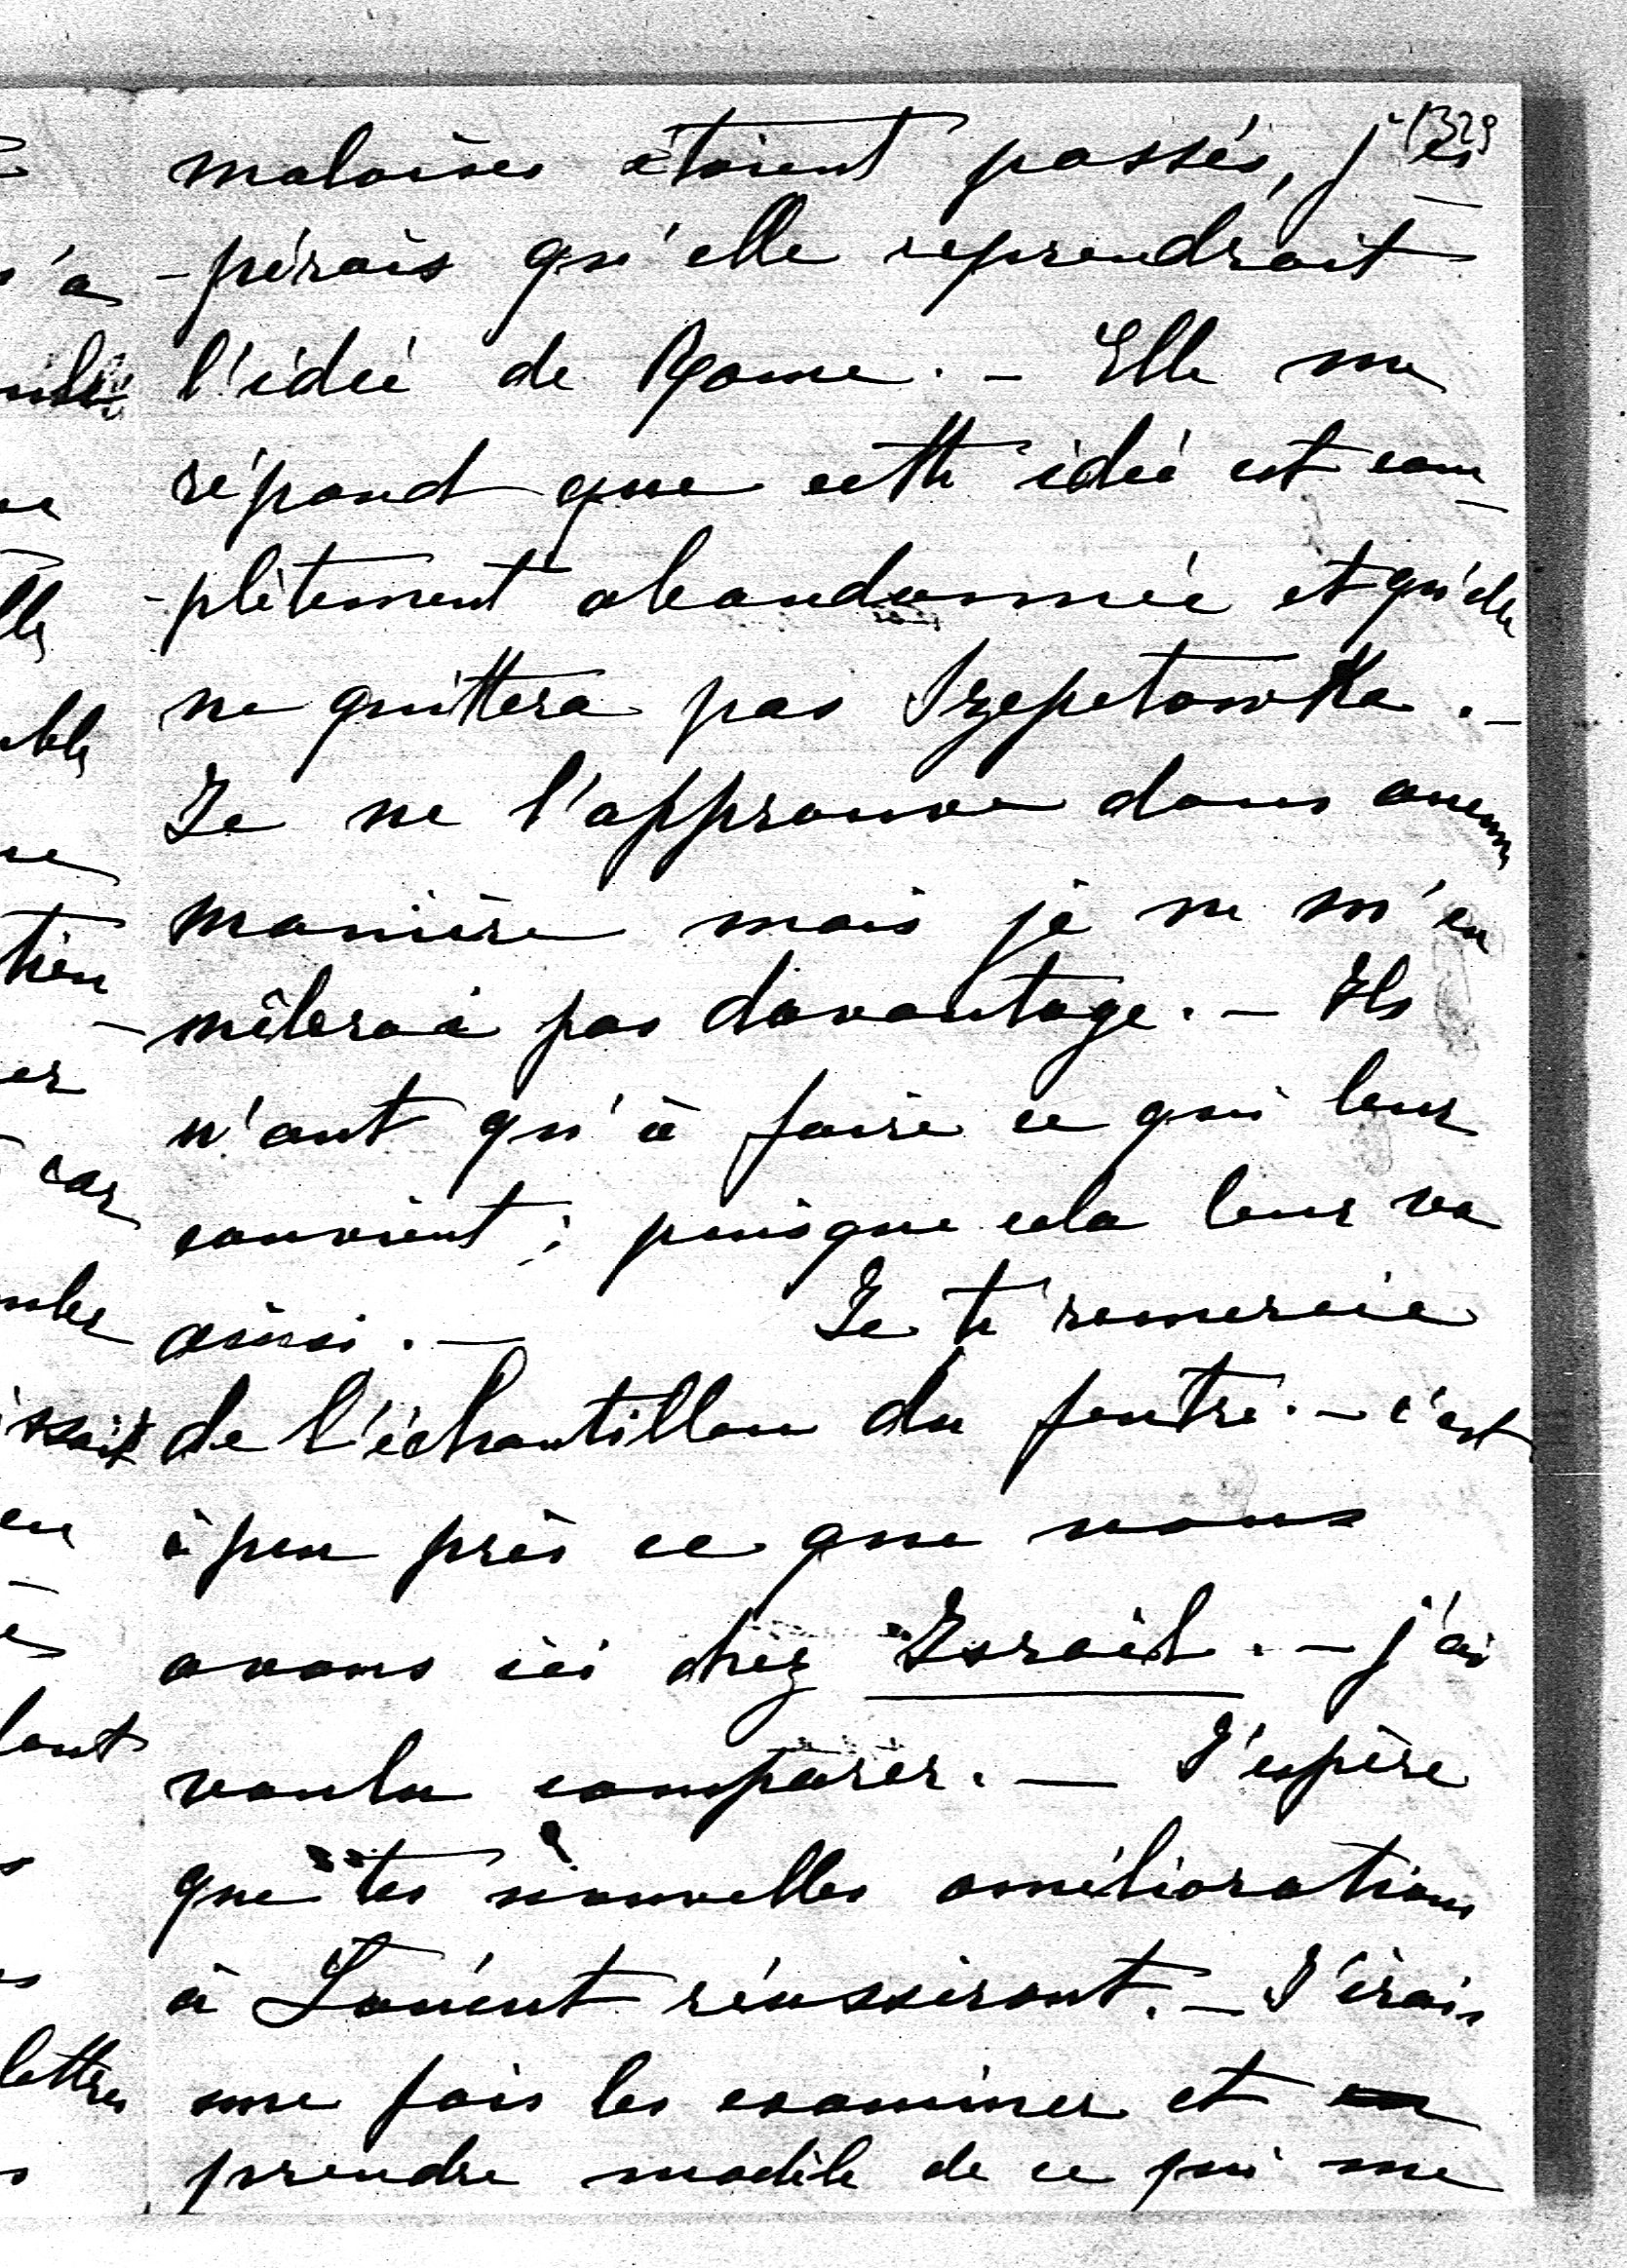 1329
malaises étaient passés, j'es
-pérais qu'elle reprendrait
l'idée de Rome. – Elle me
répond que cette idée est com-
-plètement abandonnée et qu'elle
ne quittera pas Szepetowka. –
Je ne l'approuve dans aucune
manière mais je ne m'en
mêlerai pas davantage. – Ils
n'ont qu'à faire ce qui leur
convient; puisque cela leur va
ainsi. – Je te remercie
de l'échantillon du feutre. – c'est
à peu près ce que nous
avons ici chez Israël. – j'ai
voulu comparer. – J'espère
que tes nouvelles améliorations
à réussiront. – J'irais
une fois les examiner et
prendre modèle de ce qui me